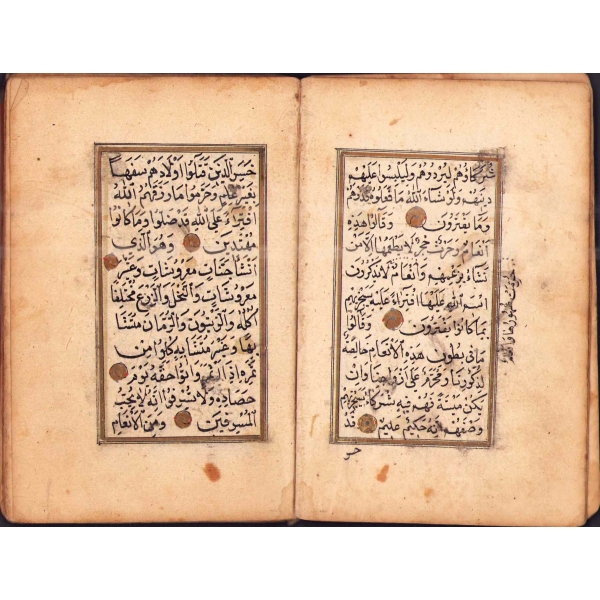 شركاؤهم ليردوهم وليلبسوا عليهم
دينهم ولو شاء الله ما فعلوه فذرهم
وما يفترون وقالوا هذه
انعام وحرث حجر لا يطعمها الا من
نشاء بزعمهم وانعام لا يذكرون
اسم الله عليها افتراء عليه سيجزيهم
بما كانوا يفترون وقالوا
ما في بطون هذه الانعام خالصة
لذكورنا ومحرم على ازواجنا وان
يكن ميتة فهم فيه شركاء سيجزيهم
وصفهم انه حكيم عليم قد
خسر
حرمت ظهورها وانعام
خسر الذين قتلوا اولادهم سفها
بغير علم وحرموا ما رزقهم الله
افتراء على الله قد ضلوا وما كانوا
مهتدين وهو الذي
انشا جنات معروشات وغير
معروشات والنخل والزرع مختلفا
اكله والزيتون والرمان متشا
بها وغير متشابه كلوا من
ثمره اذا اثمر واتوا حقه يوم
حصاده ولا تسرفوا انه لا يحب
المسرفين ومن الانعام